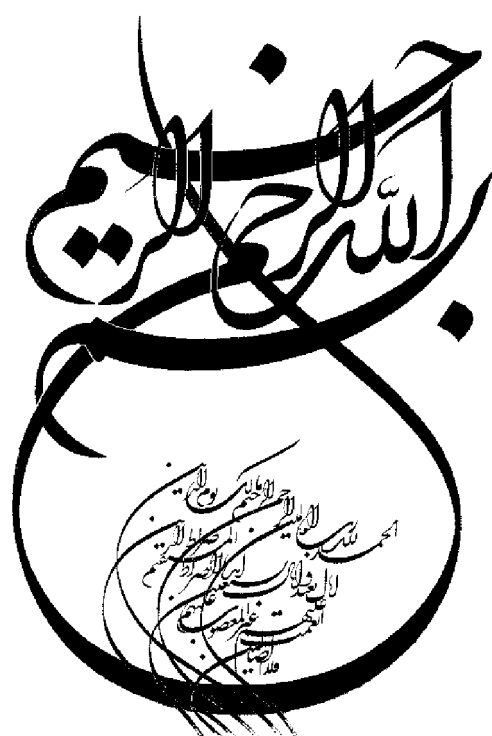 بسم الله الرحمن الرحیم
الحمد لله رب العالمین الرحمن الرحیم مالک یوم الدین
ایاک نعبد و ایاک نستعین اهدنا الصراط المستقیم
صراط الذین انعمت علیهم
غیر المغضوب علیهم
ولا الضالین